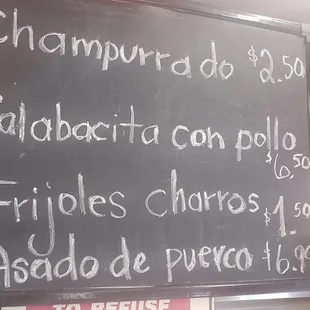 Champurrado $2.50
Calabacita con pollo
$6.50
Frijoles charros $1.50
Asado de puerco $6.99
TO REFUSE